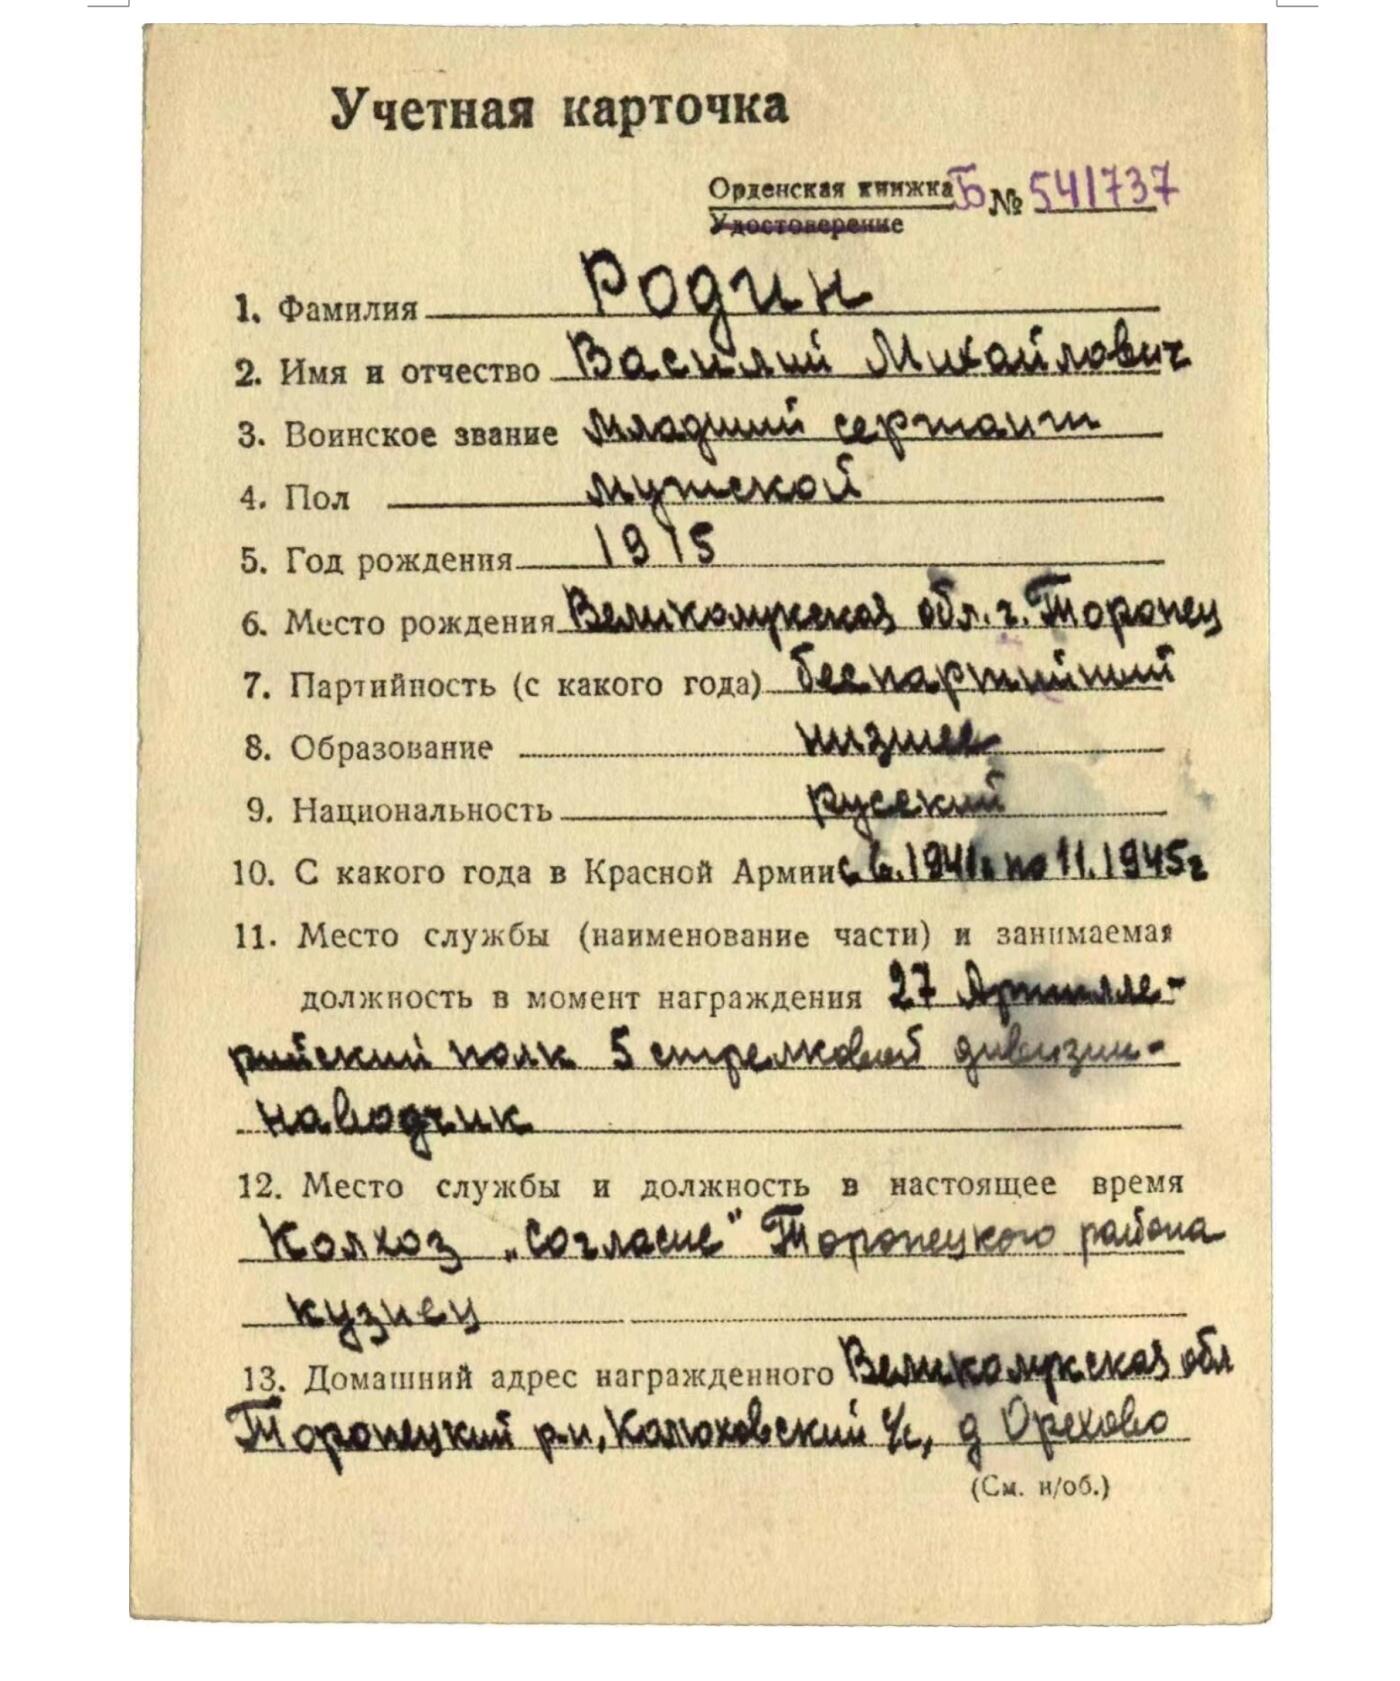 Учетная карточка
Орденская книжка Б № 541737
Удостоверение
1. Фамилия Родин
2. Имя и отчество Василий Михайлович
3. Воинское звание младший сержант
4. Пол мужской
5. Год рождения 1915
6. Место рождения Великолукская обл. г. Торопец
7. Партийность (с какого года) беспартийный
8. Образование низшее
9. Национальность русский
10. С какого года в Красной Армии с 6.1941г по 11.1945г
11. Место службы (наименование части) и занимаемая
должность в момент награждения 27 Артилле-
рийский полк 5 стрелковой дивизии-
наводчик
12. Место службы и должность в настоящее время
Колхоз „Согласие" Торопецкого района
кузнец
13. Домашний адрес награжденного Великолукская обл
Торопецкий р-н, Калюховский с/с, д Орехово
(См. н/об.)